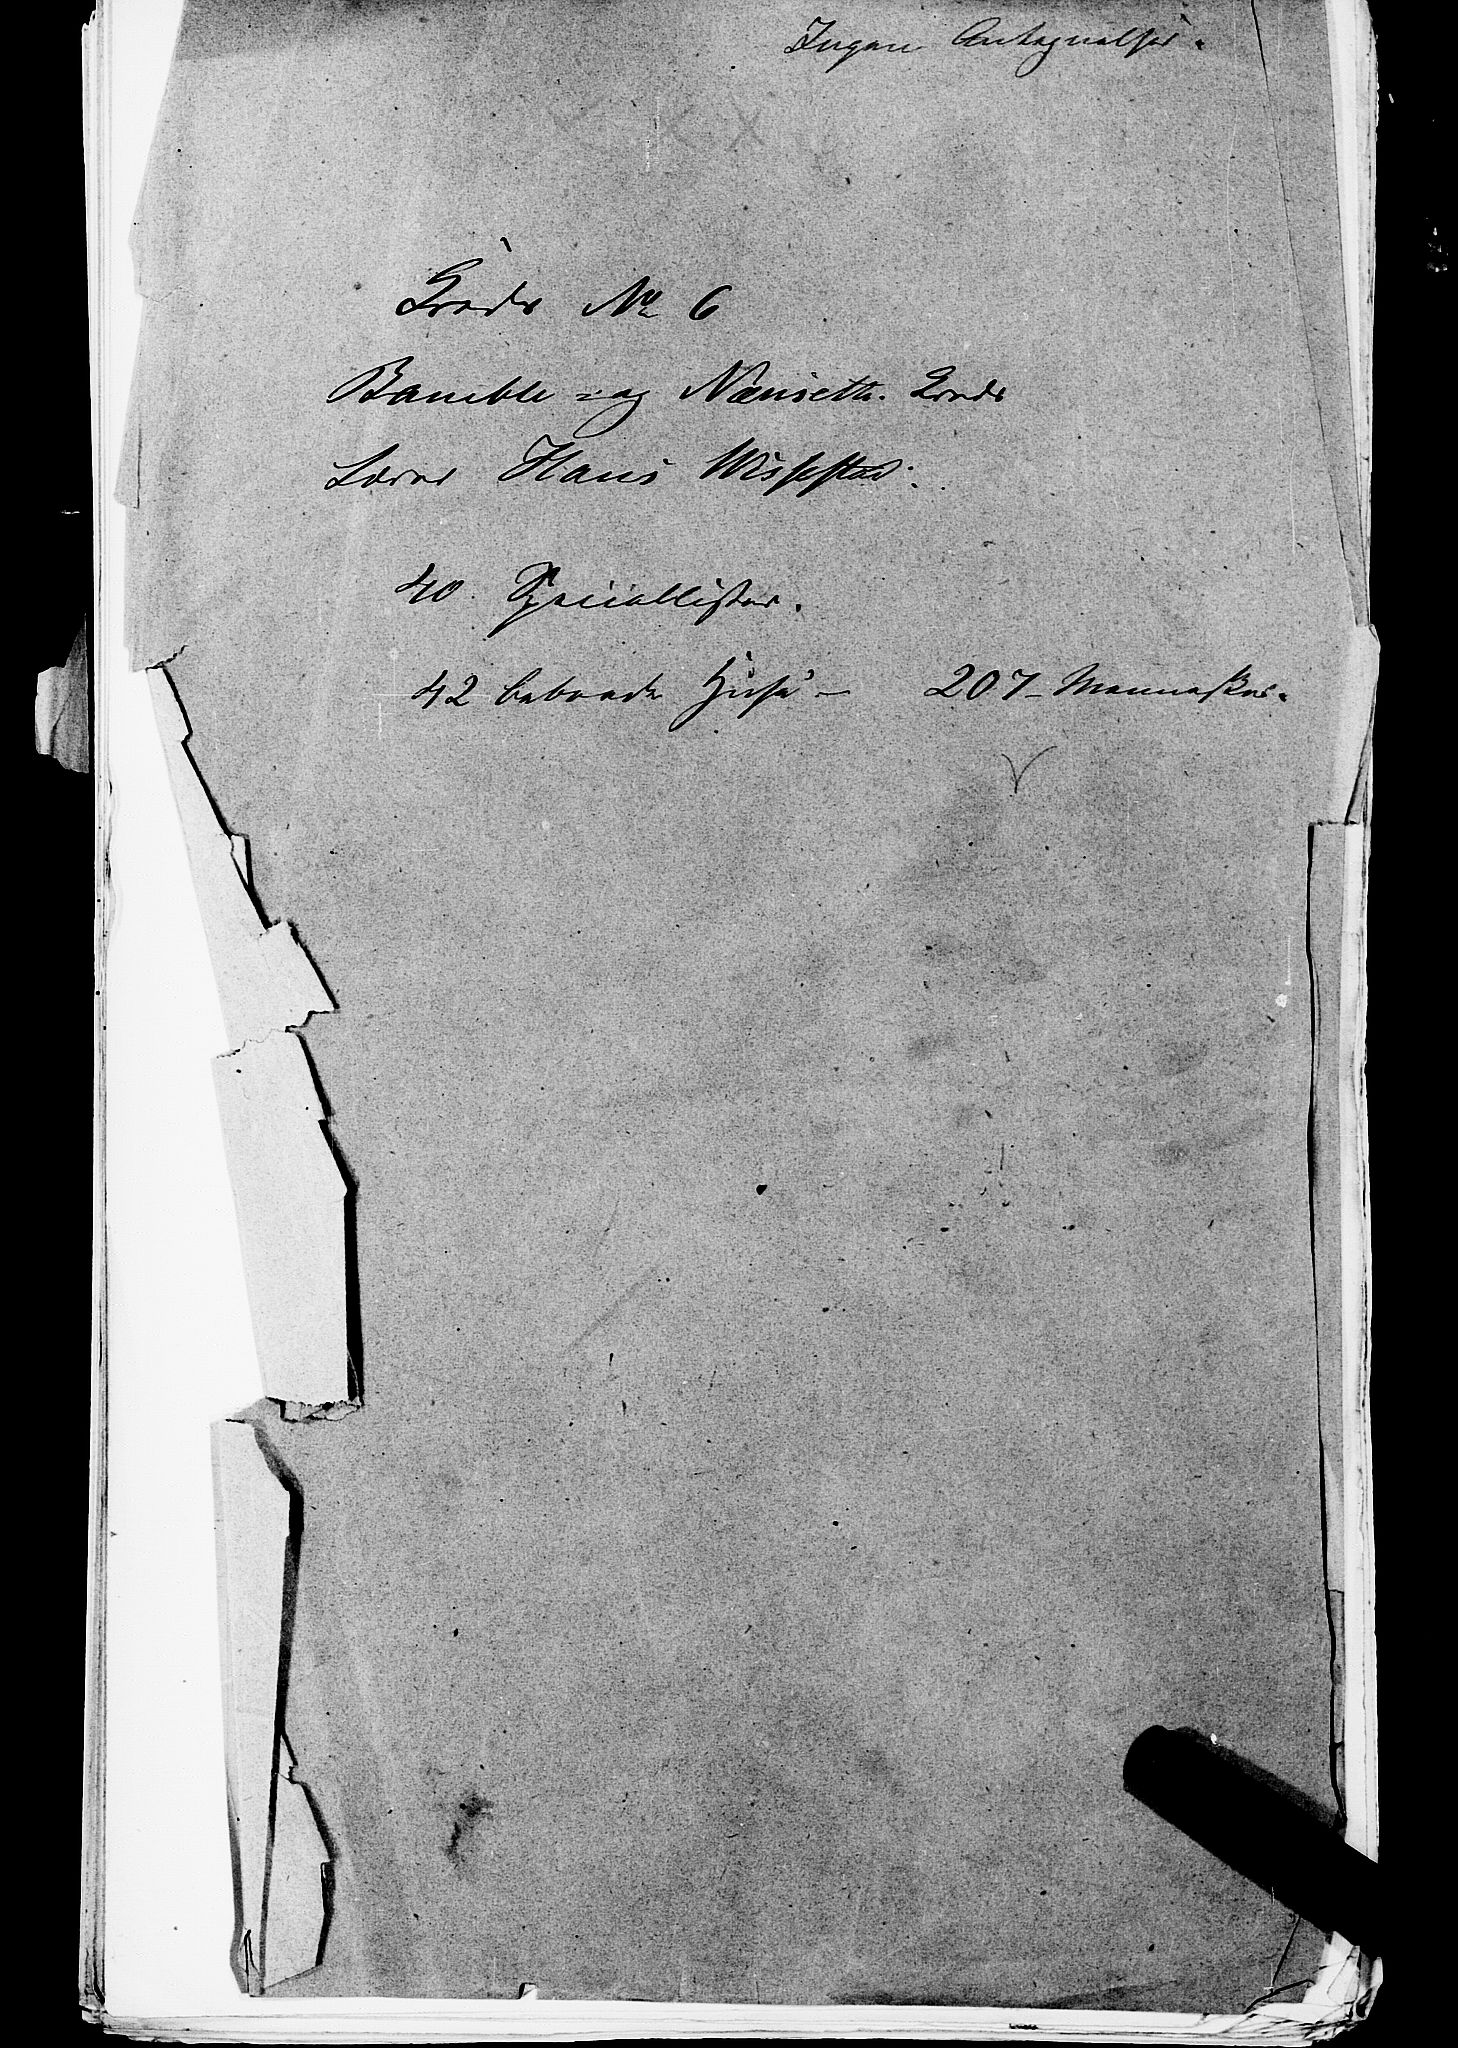 Ingen Antegnelser.
Kreds No 6
Bamble og Nenseth. Kreds
Lærer Hans Wissestad.
40 Speciallister.
42 beboede Huse – 207 – Mennesker.